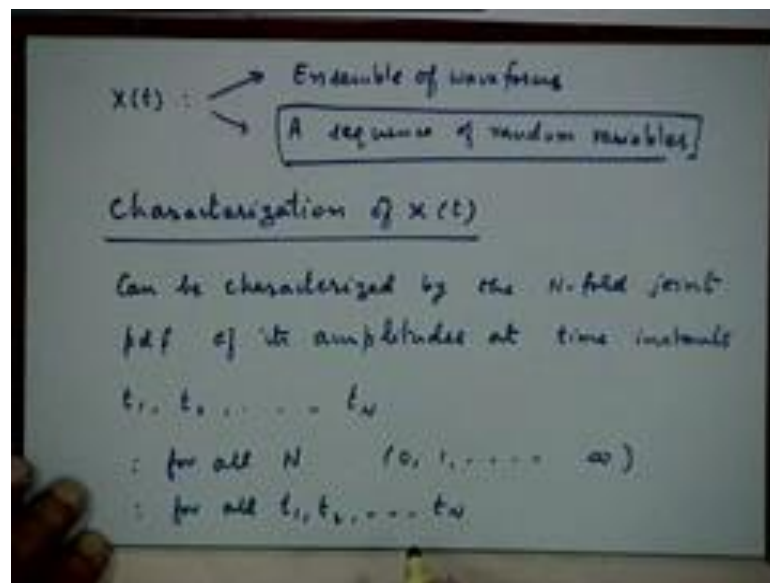 x(t) : → Ensemble of waveforms
→ A sequence of random variables
Characterization of x(t)
Can be characterized by the N-fold joint
pdf of its amplitudes at time instants
t₁, t₂, ..... t_N
: for all N (0, 1, ..... ∞)
: for all t₁, t₂, ... t_N